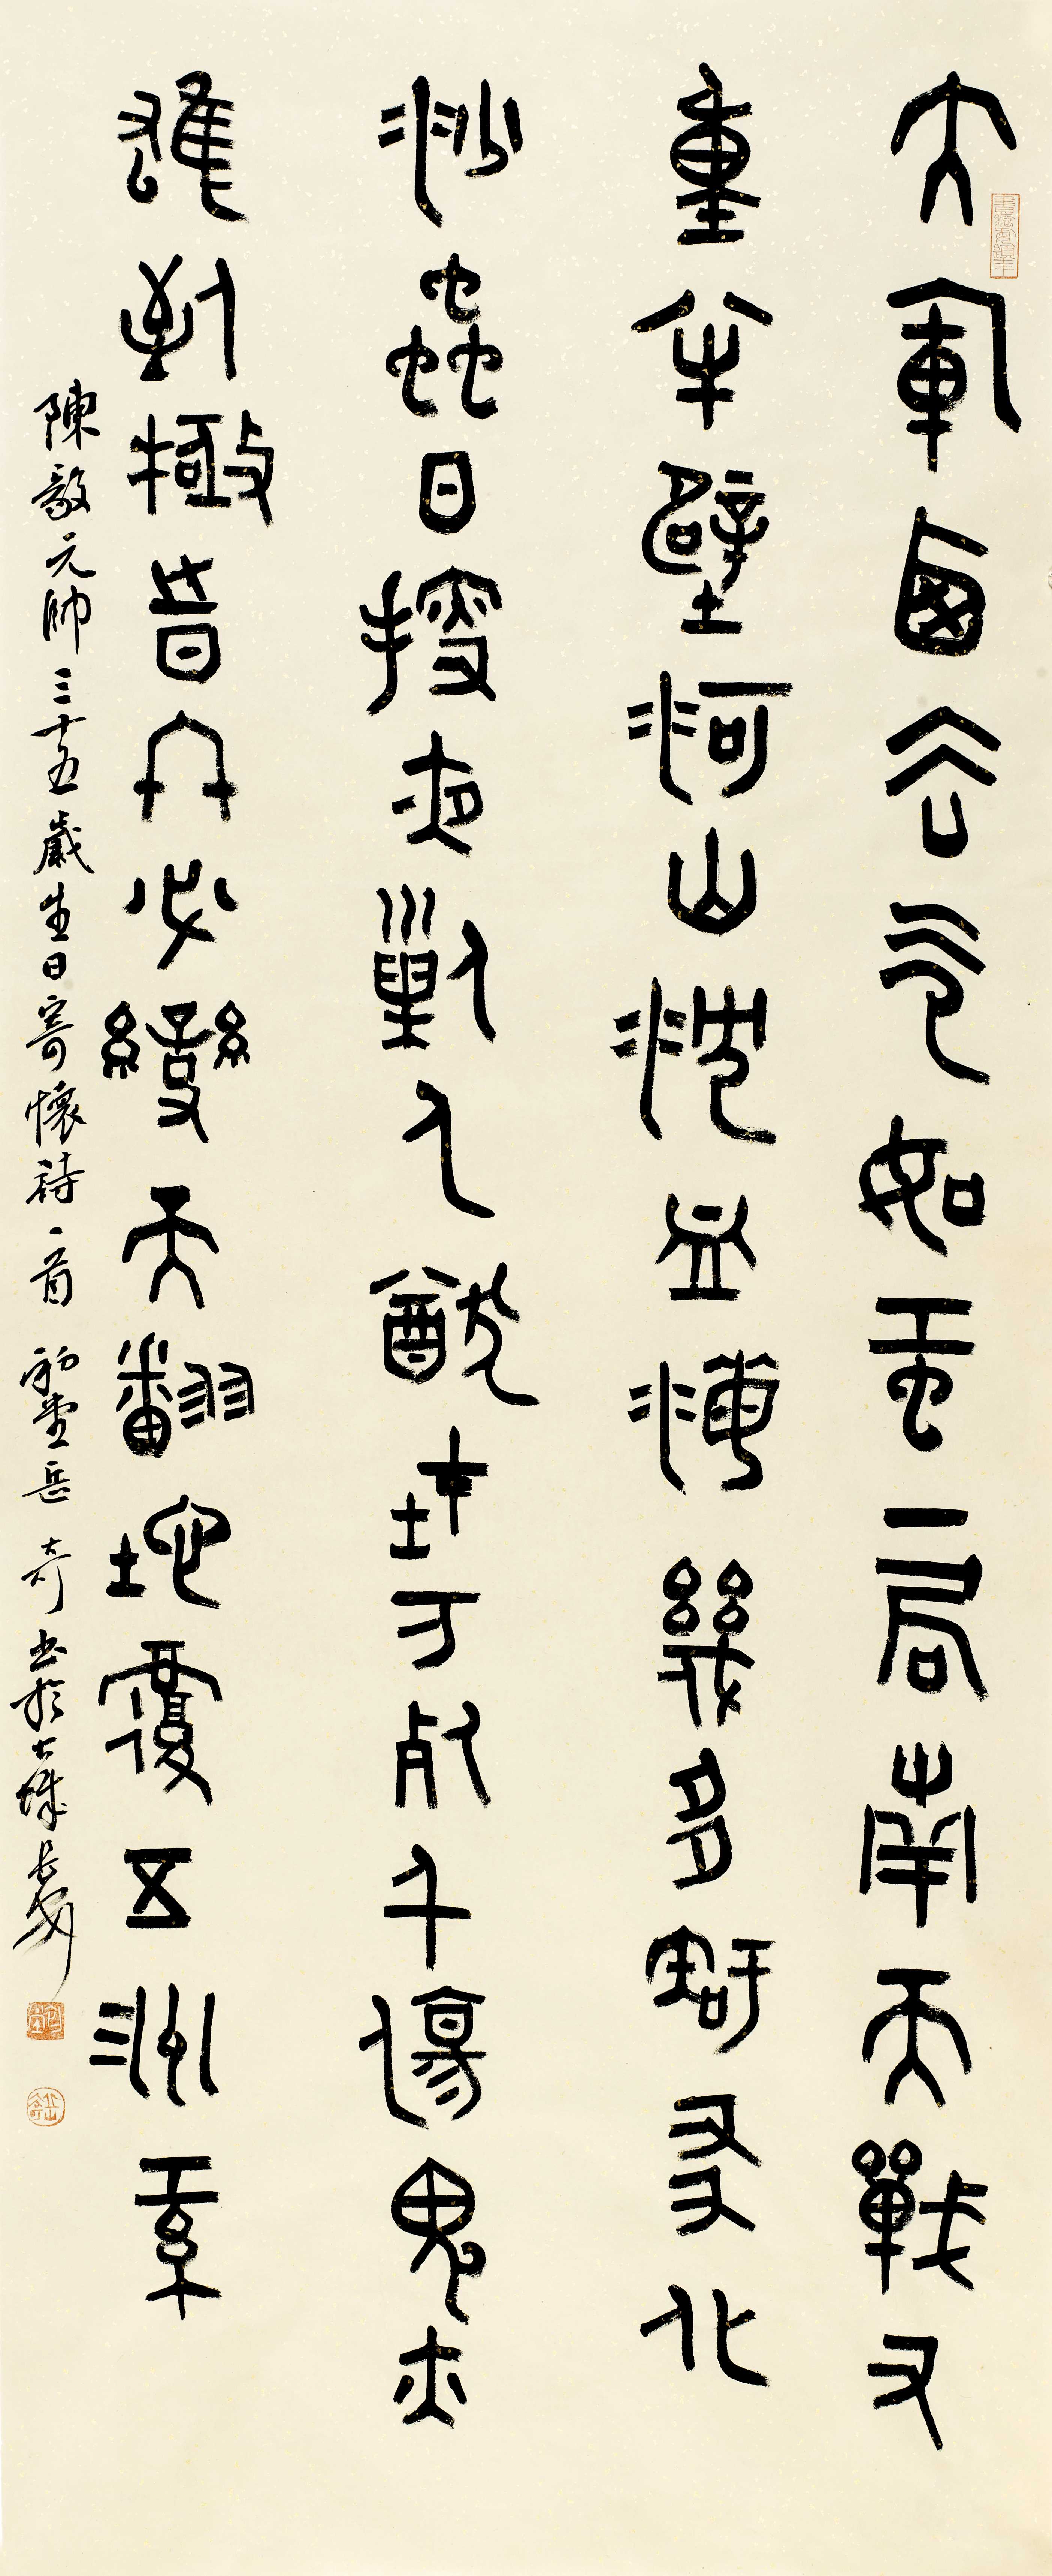 大軍西去气如虹一局南天戰又
重半壁河山沈血海幾多知友化
沙蟲日搜夜剿人猶在万死千傷鬼亦
雄到極時終必變天翻地覆五洲紅
陳毅元帥三十五歲生日寄懷詩一首 岳奇書於古城長安